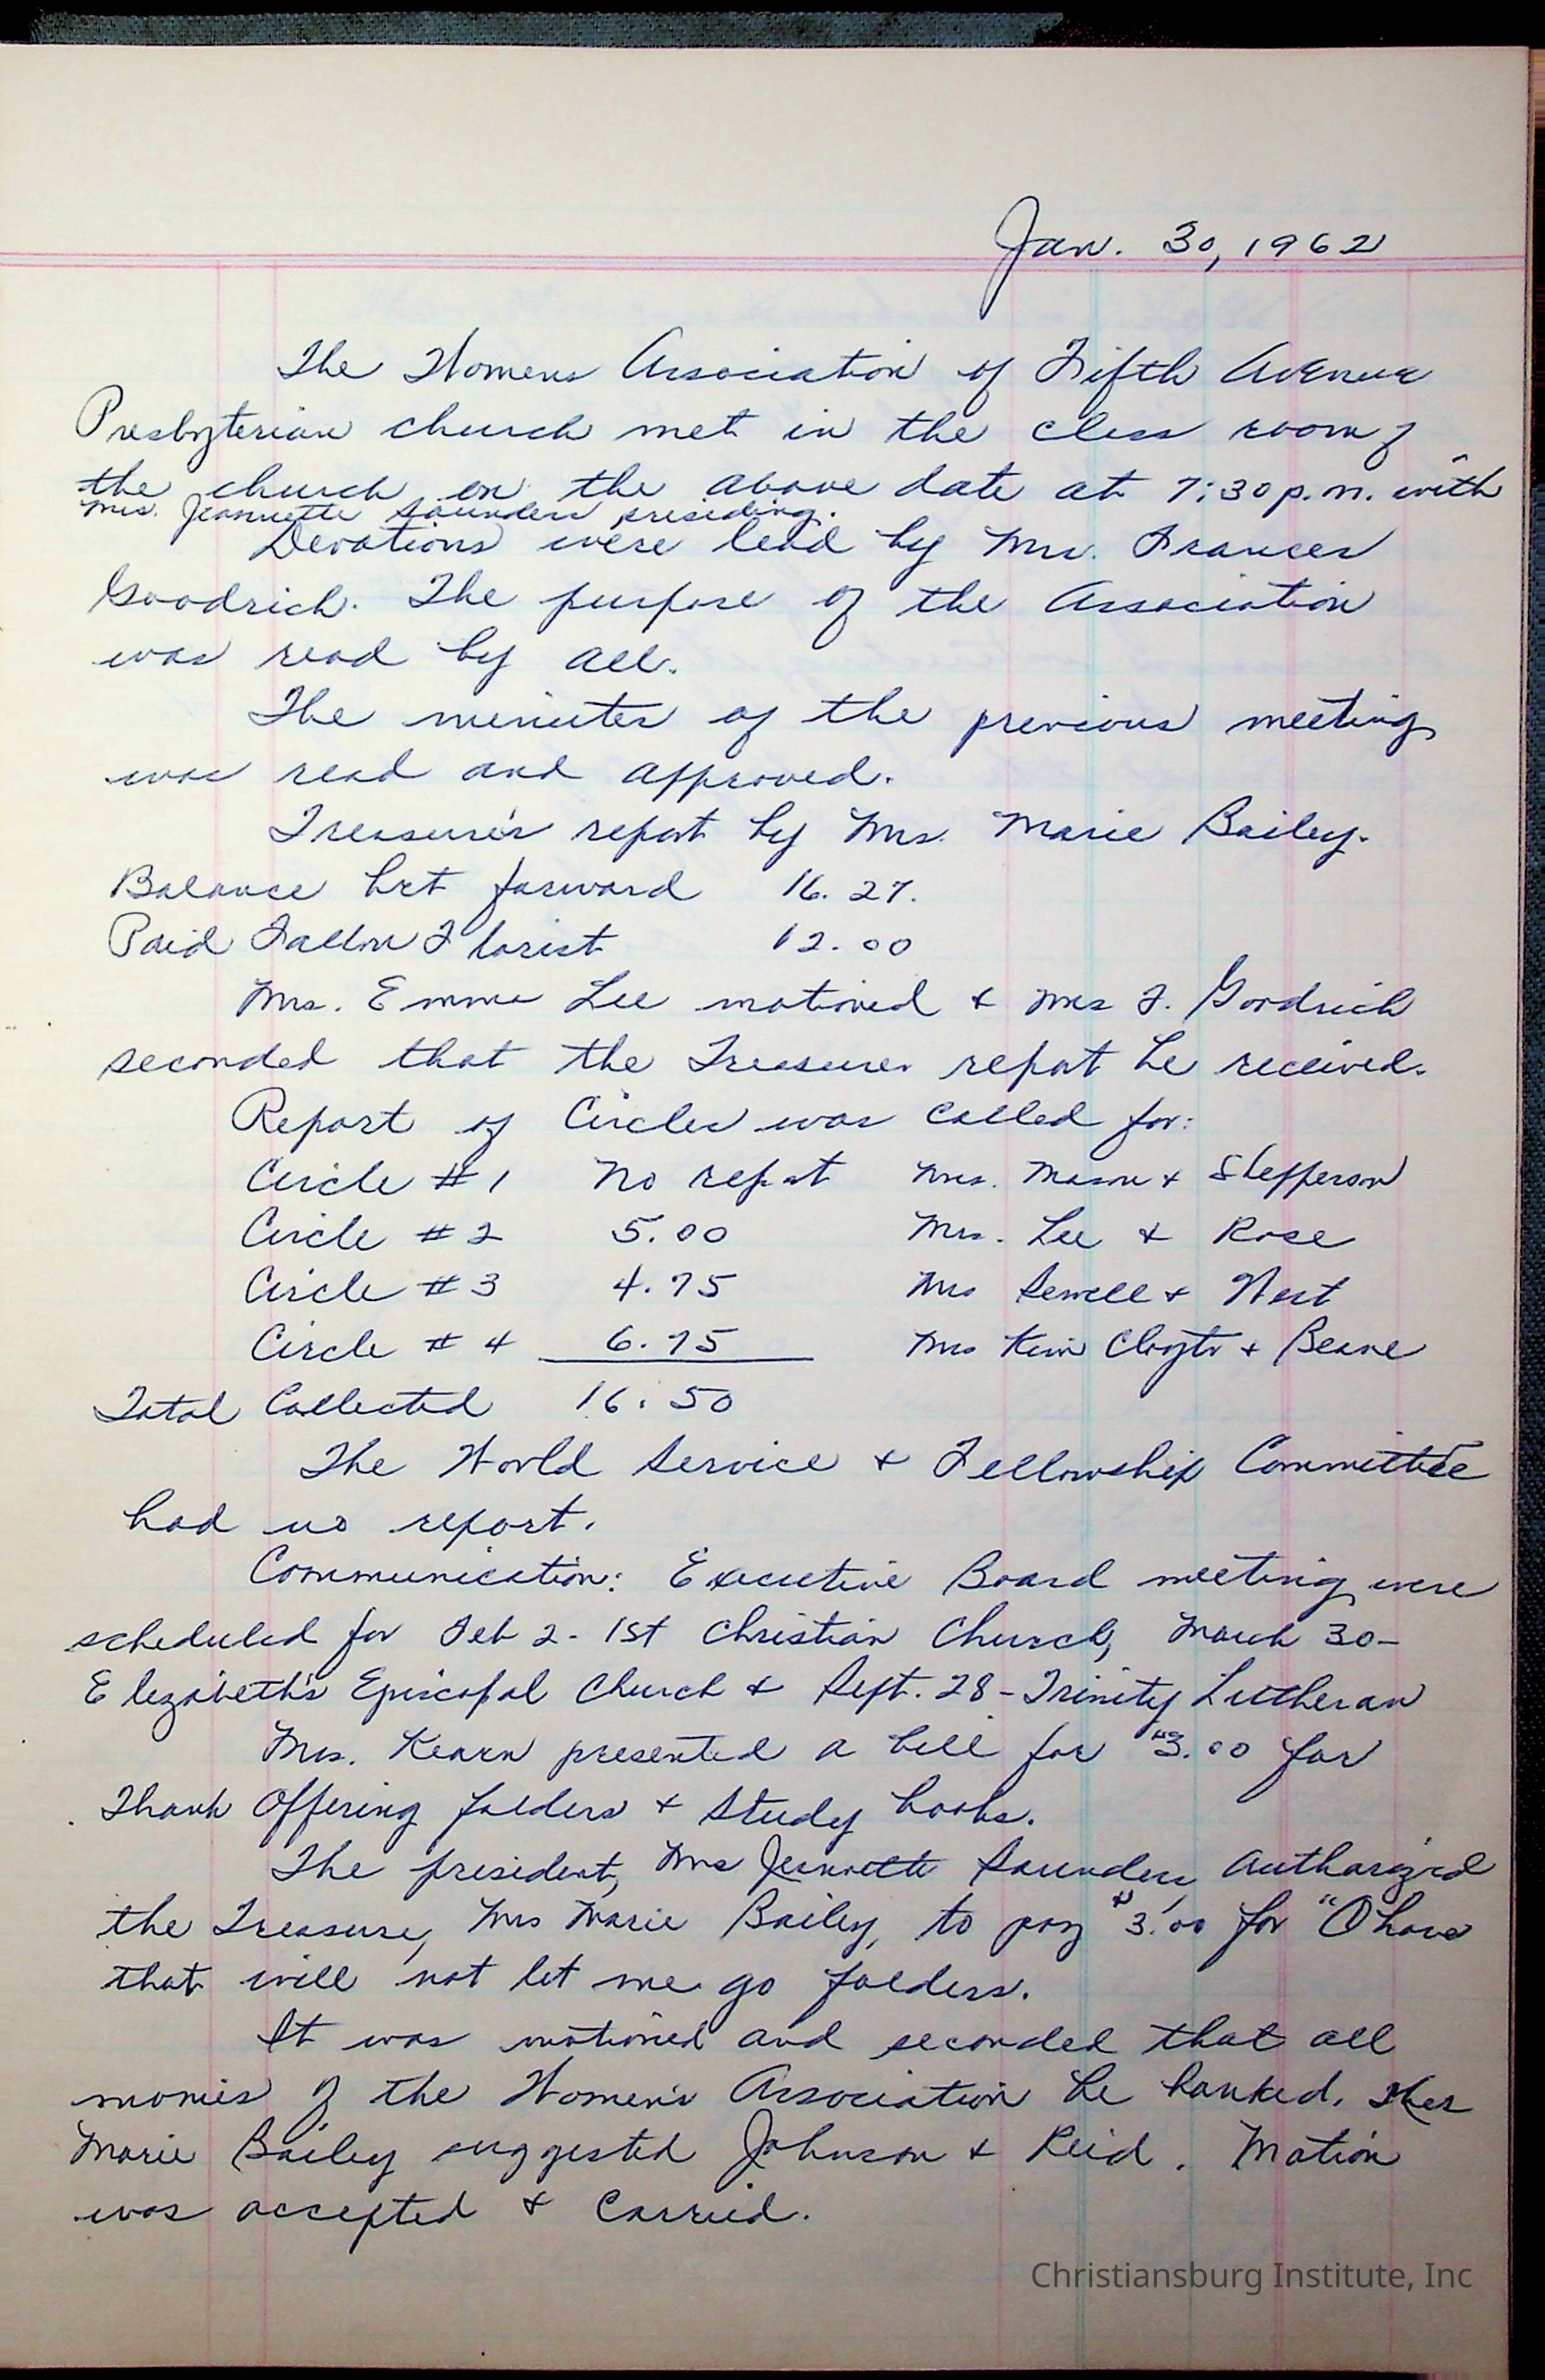 Jan. 30, 1962
The Womens Association of Fifth Avenue
Presbyterian church met in the class room of
the church on the above date at 7:30 p.m. with
Mrs. Jeannette Saunders presiding.
Devotions were lead by Mrs. Frances
Goodrich. The purpose of the Association
was read by all.
The minutes of the previous meeting
was read and approved.
Treasurer's report by Mrs. Marie Bailey.
Balance brt forward 16.27.
Paid Fallon Florist 12.00
Mrs. Emma Lee motioned & Mrs F. Goodrich
seconded that the Treasurer report be received.
Report of Circles was called for:
Circle #1 No report Mrs. Mason & Shepperson
Circle #2 5.00 Mrs. Lee & Rose
Circle #3 4.75 Mrs Sewell & West
Circle #4 6.75 Mrs Kim Clayto & Beane
Total Collected 16.50
The World Service & Fellowship Committee
had no report.
Communication: Executive Board meeting were
scheduled for Feb 2 - 1st Christian Church, March 30-
Elezabeth's Episcopal Church & Sept. 28 - Trinity Lutheran
Mrs. Kearn presented a bill for $3.00 for
Thank Offering folders & Study books.
The president, Mrs Jeannette Saunders authorized
the Treasure, Mrs Marie Bailey, to pay $3.00 for "O Love
that will not let me go folders.
It was motioned and seconded that all
monies of the Women's Association be banked.
Marie Bailey suggested Johnson & Reid. Motion
was accepted & Carried.
Christiansburg Institute, Inc